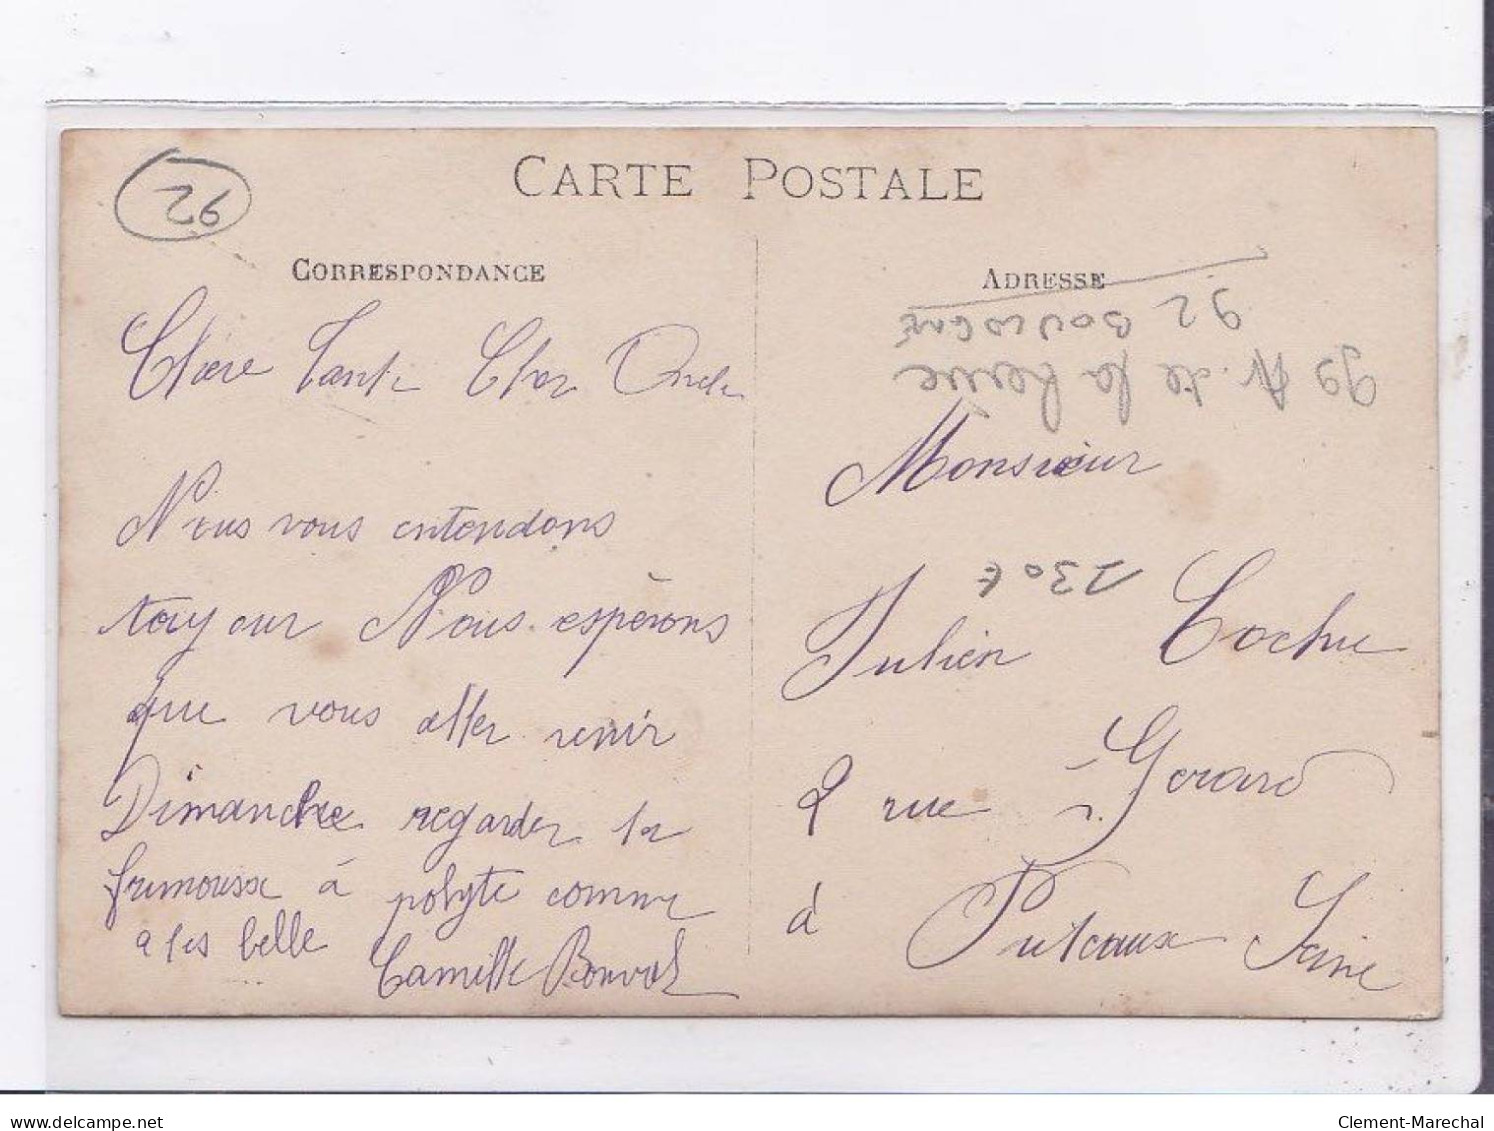 92
CARTE POSTALE
CORRESPONDANCE
ADRESSE
92 BOULOGNE
99 Av. de la Reine
Chère Tante Cher Oncle
Monsieur
Nous vous entendons
130 €
Julien Cochu
Nous espérons
que vous aller venir
2 rue Gerard
Dimanche regarder la
frimousse à polyte comme
à Puteaux Seine
a les belle
Camille Bonval
delcampe.net
Clement-Marechal